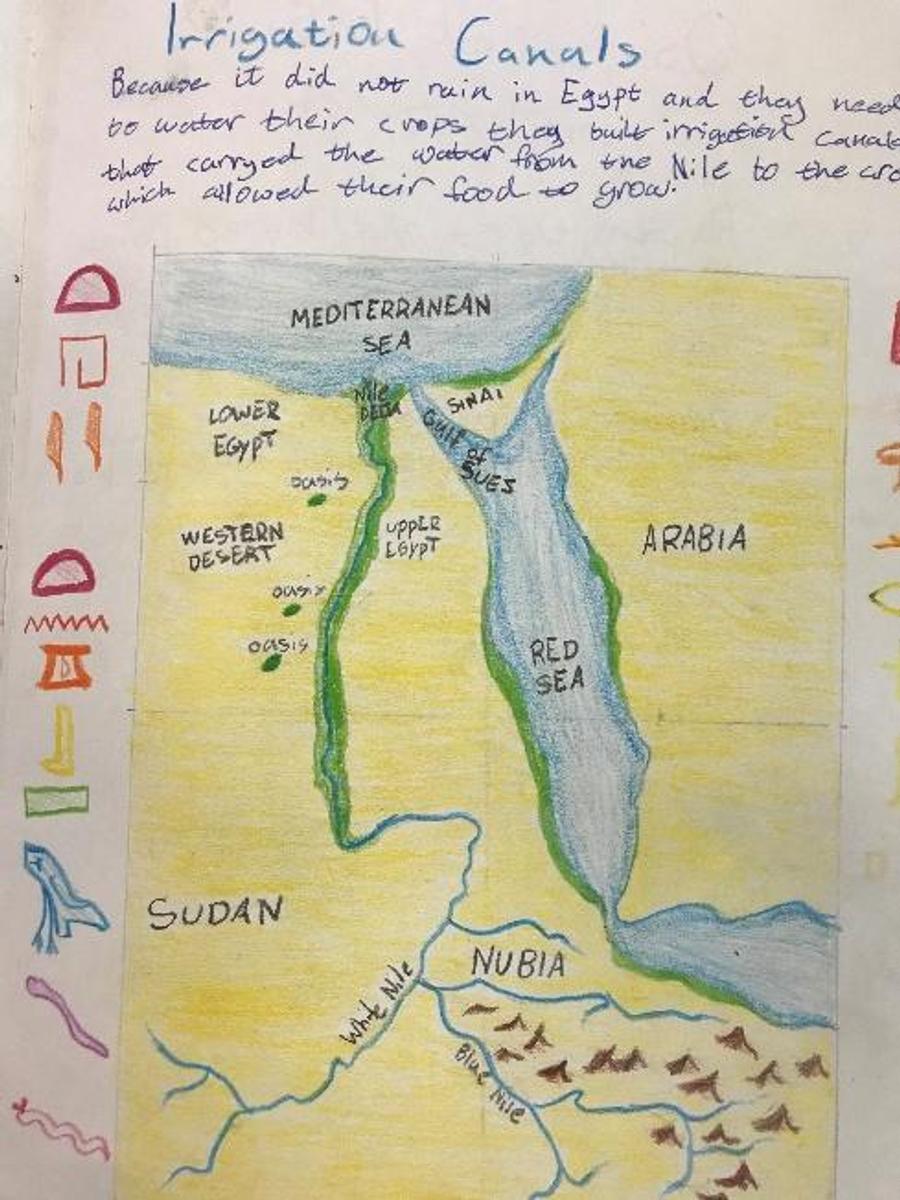 Irrigation Canals
Because it did not rain in Egypt and they need
to water their crops they built irrigation canals
that carryed the water from the Nile to the cro
which allowed their food to grow.
MEDITERRANEAN
SEA
Nile
DELTA
SINAI
LOWER
EGYPT
Gulf
of
SUES
oasis
WESTERN
DESERT
UPPER
EGYPT
ARABIA
oasis
oasis
RED
SEA
SUDAN
NUBIA
White Nile
Blue Nile